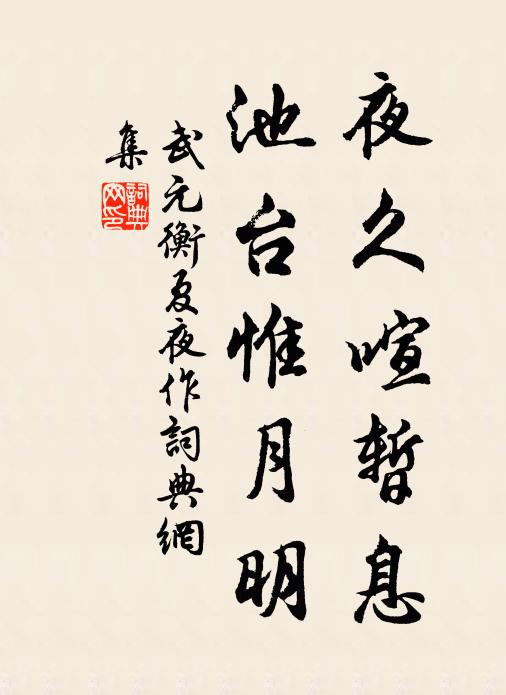 夜久喧暫息
池台惟月明
武元衡夏夜作詞典網
集
詞典
网印